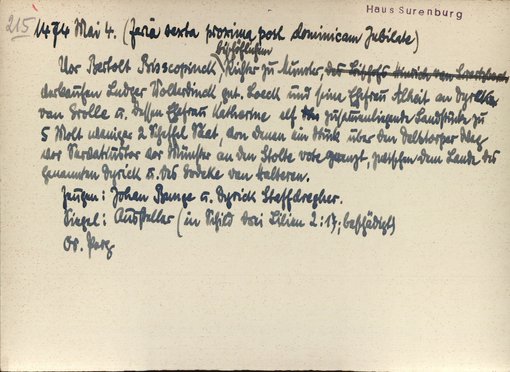 Haus Surenburg
215
1474 Mai 4. (feria sexta proxima post dominicam Jubilate)
bischöflichen
Vor Bertolt Bisscopinck, Richter zu Münster, des Bischofs Hinrich von
verkaufen Ludger Wolterdinck gnt. Loeck und seine Ehefrau Alheit an Dyrick
van Grolle u. dessen Ehefrau Katherine elf zusammenliegende Landstücke zu
5 Molt weniger 2 Scheffel Saat, von denen ein Stück über den Delstorper Weg
vor Servatiustor vor Münster an den Stolte vote grenzt, zwischen dem Lande des
genannten Dyrick u. des Godeke van Halteren.
Zeugen: Johan Bunge u. Dyrick Staffdregher.
Siegel: Aussteller (in Schild drei Lilien 2:1; beschädigt)
Or. Perg